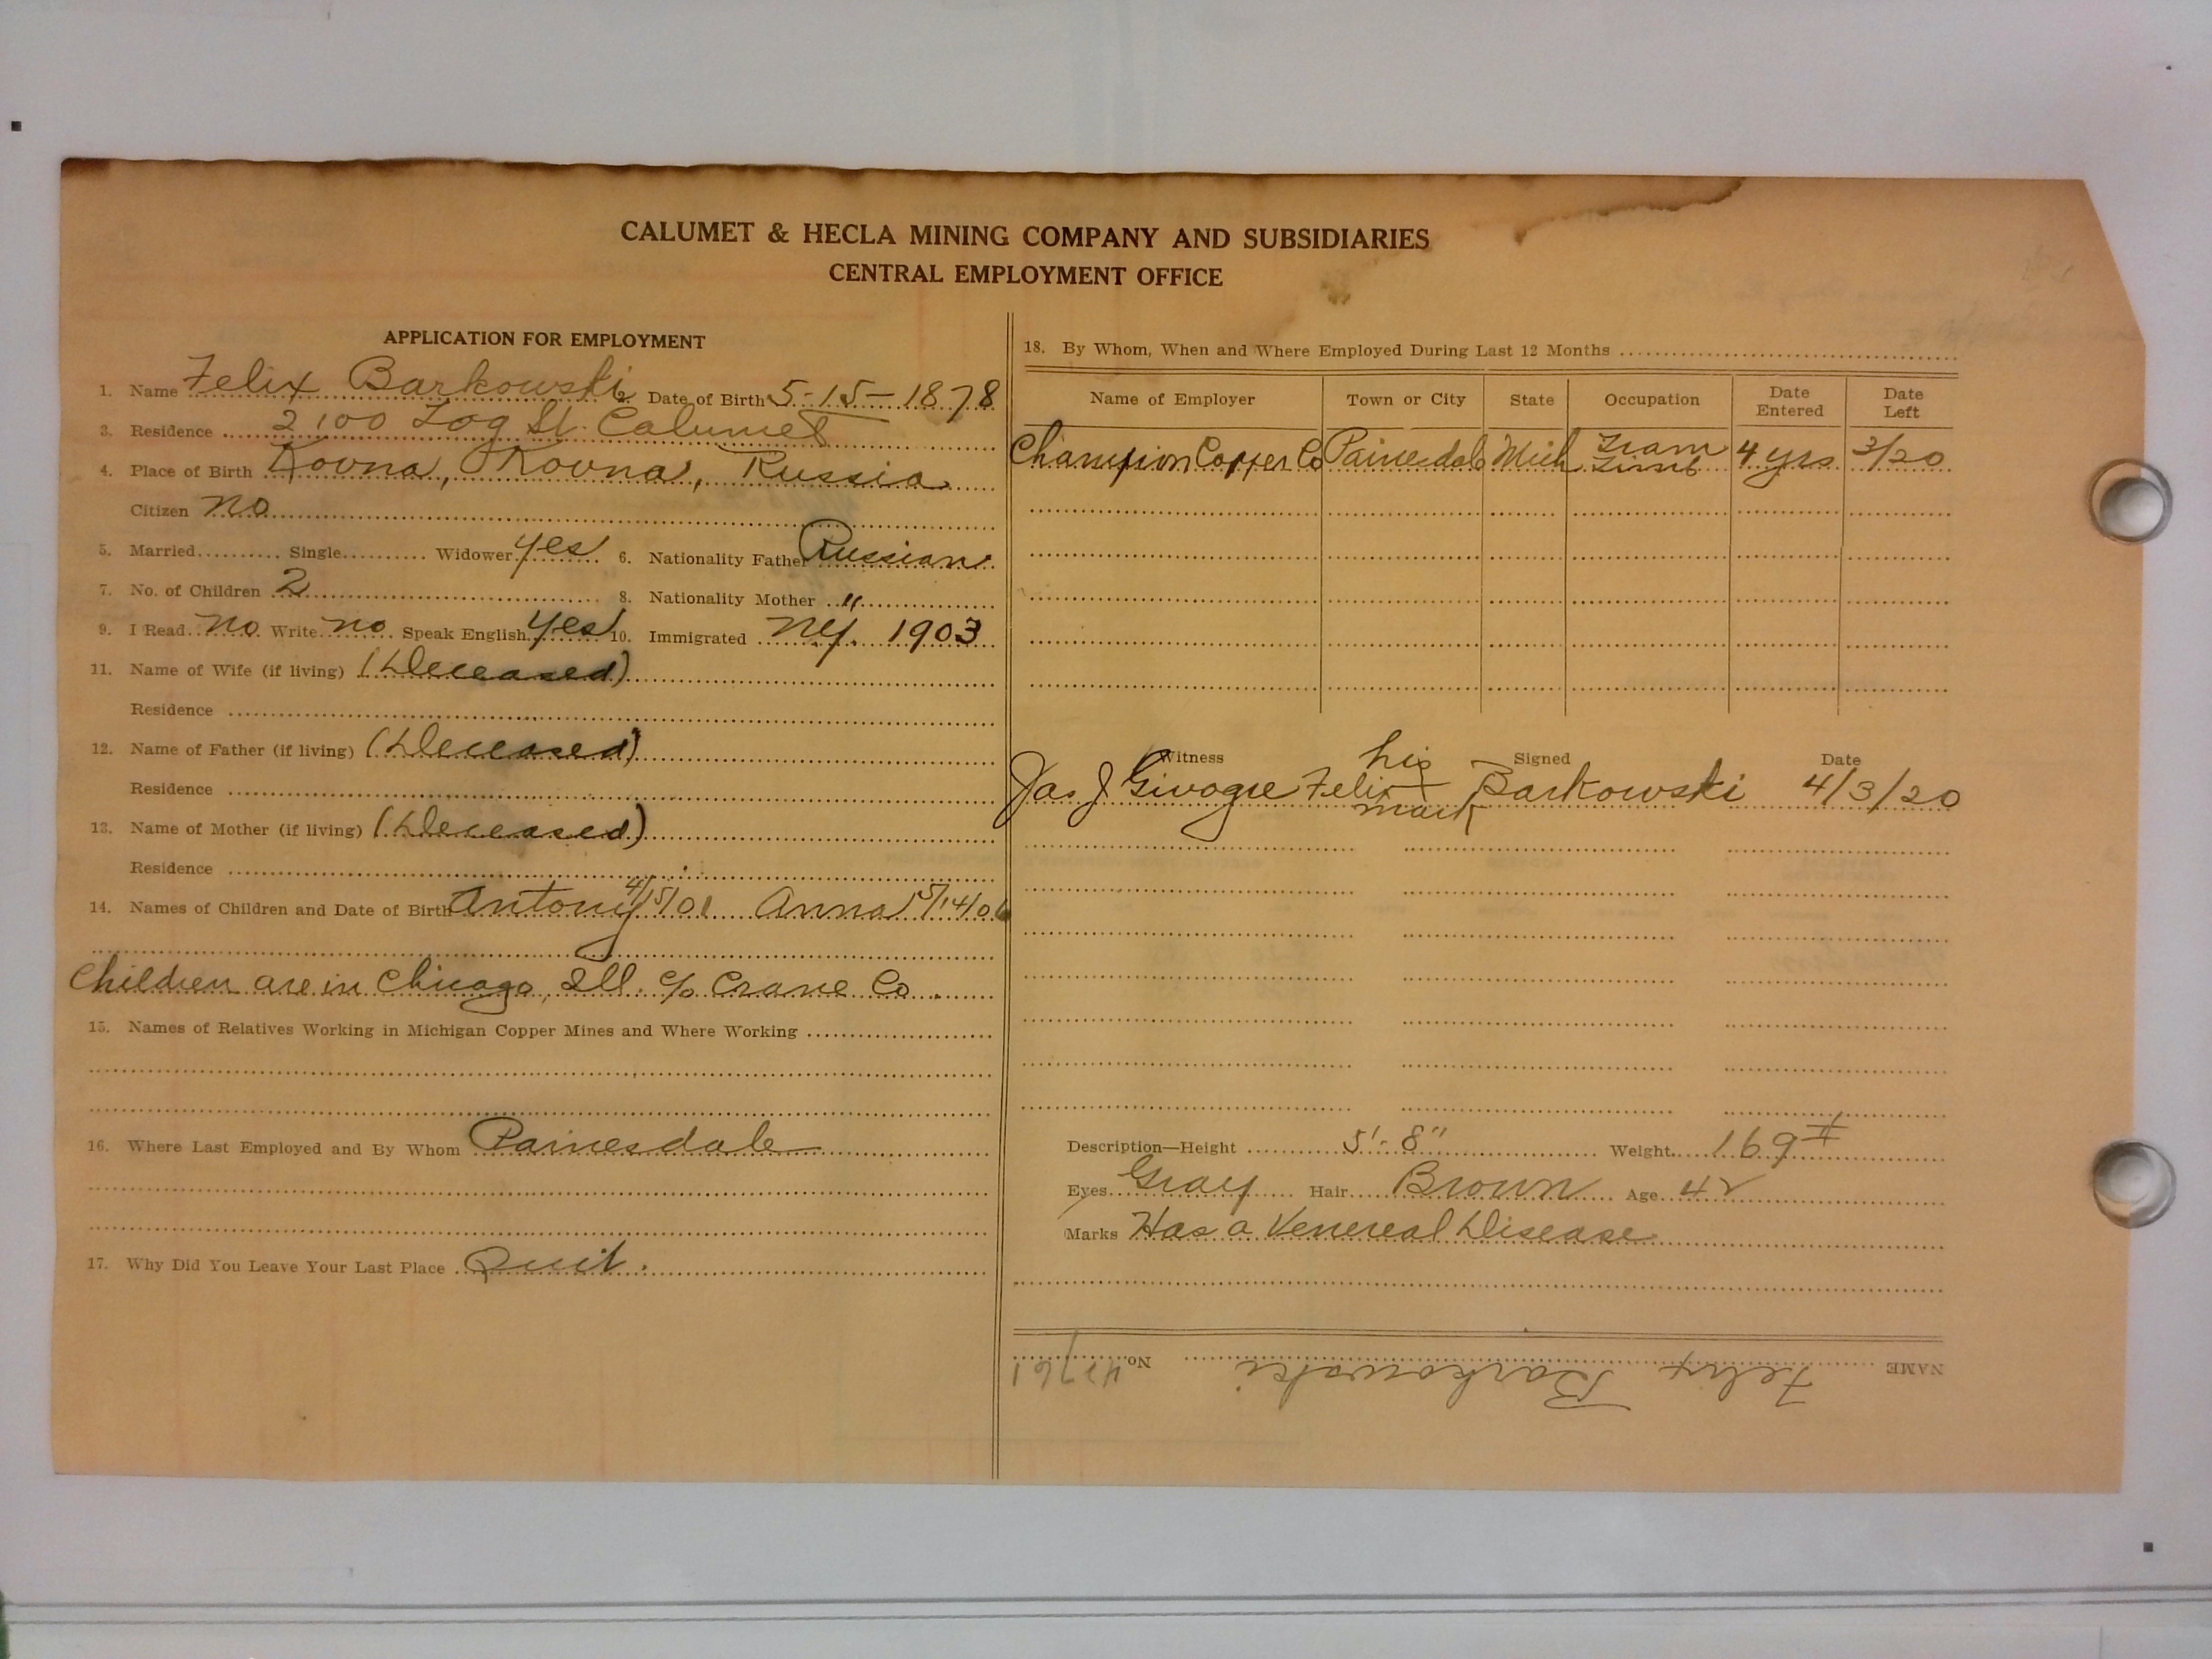 CALUMET & HECLA MINING COMPANY AND SUBSIDIARIES
CENTRAL EMPLOYMENT OFFICE
APPLICATION FOR EMPLOYMENT
1. Name Felix Barkowski 2. Date of Birth 5-15-1878
3. Residence 2100 Log St. Calumet
4. Place of Birth Kovna, Kovna, Russia
Citizen no
5. Married Single Widower yes 6. Nationality Father Russian
7. No. of Children 2 8. Nationality Mother "
9. I Read no Write no Speak English yes 10. Immigrated NY. 1903
11. Name of Wife (if living) (Deceased)
Residence
12. Name of Father (if living) (Deceased)
Residence
13. Name of Mother (if living) (Deceased)
Residence
14. Names of Children and Date of Birth Antony 4/15/01 Anna 5/14/06
Children are in Chicago, Ill. c/o Crane Co.
15. Names of Relatives Working in Michigan Copper Mines and Where Working
16. Where Last Employed and By Whom Painesdale
17. Why Did You Leave Your Last Place Quit.
18. By Whom, When and Where Employed During Last 12 Months
Name of Employer Town or City State Occupation Date Entered Date Left
Champion Copper Co Painesdale Mich Tram Timb 4 yrs 3/20
Witness Signed Date
his
Jas J Givogue Felix X Barkowski 4/3/20
mark
Description—Height 5'-8" Weight 169#
Eyes Gray Hair Brown Age 42
Marks Has a Venereal Disease
NAME Felix Barkowski No.